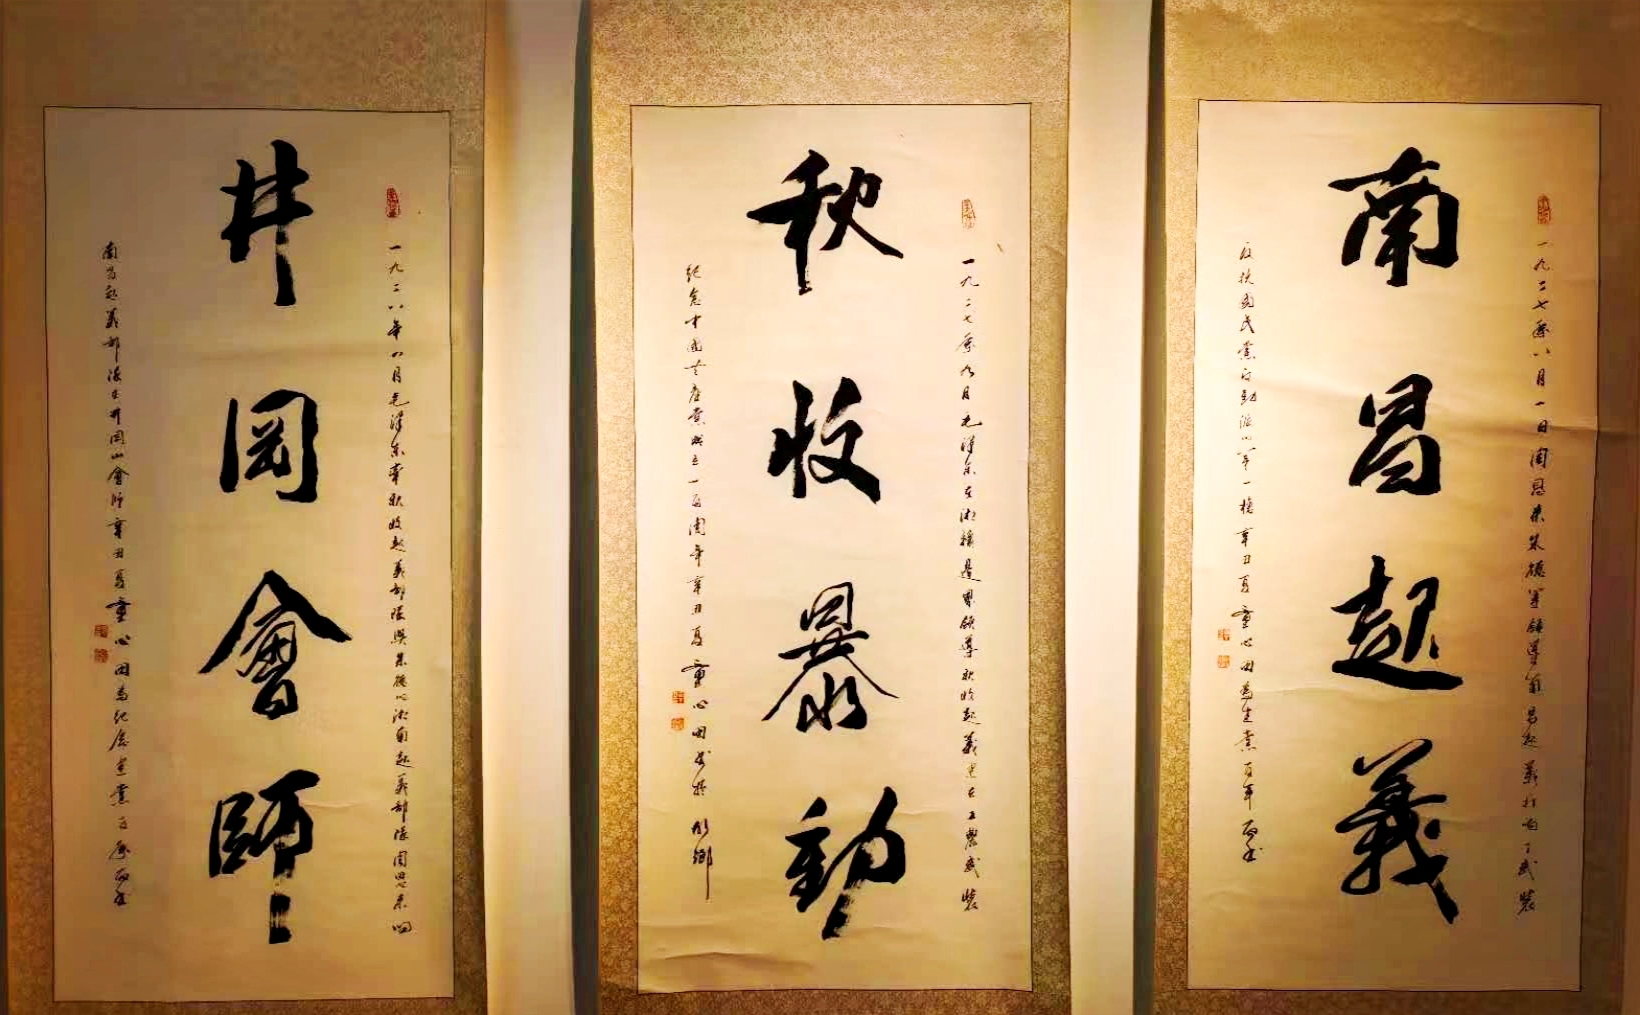 南昌起義
一九二七年八月一日周恩來朱德等領導南昌起義打响了武裝
反抗國民黨反動派的第一槍辛丑夏童心田為建黨百年而書
秋收暴動
一九二七年九月毛澤东在湘赣邊界領導秋收起義建立工農武裝
纪念中國共產黨成立一百周年辛丑夏童心田书於
井岡會師
一九二八年四月毛澤东率秋收起義部隊與朱德的湘南起義部隊周恩来的
南昌起義部隊在井岡山會師辛丑夏童心田為纪念建黨百年而書